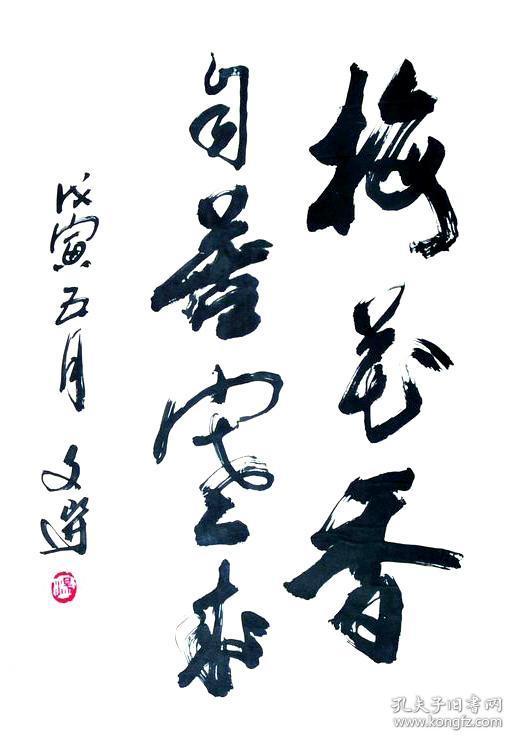 梅花香
自苦寒来
戊寅五月 文选
孔夫子旧书网
www.kongfz.com